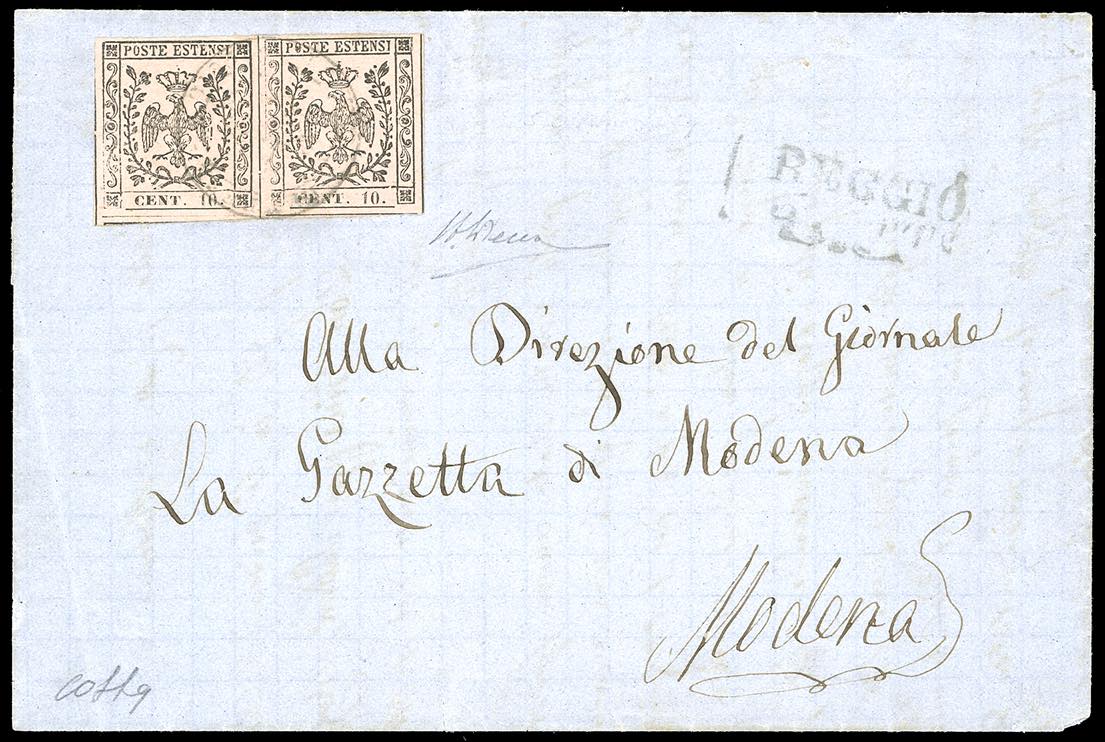 POSTE ESTENSI POSTE ESTENSI
CENT. 10. CENT. 10.
REGGIO
Alla Direzione del Giornale
La Gazzetta di Modena
Modena